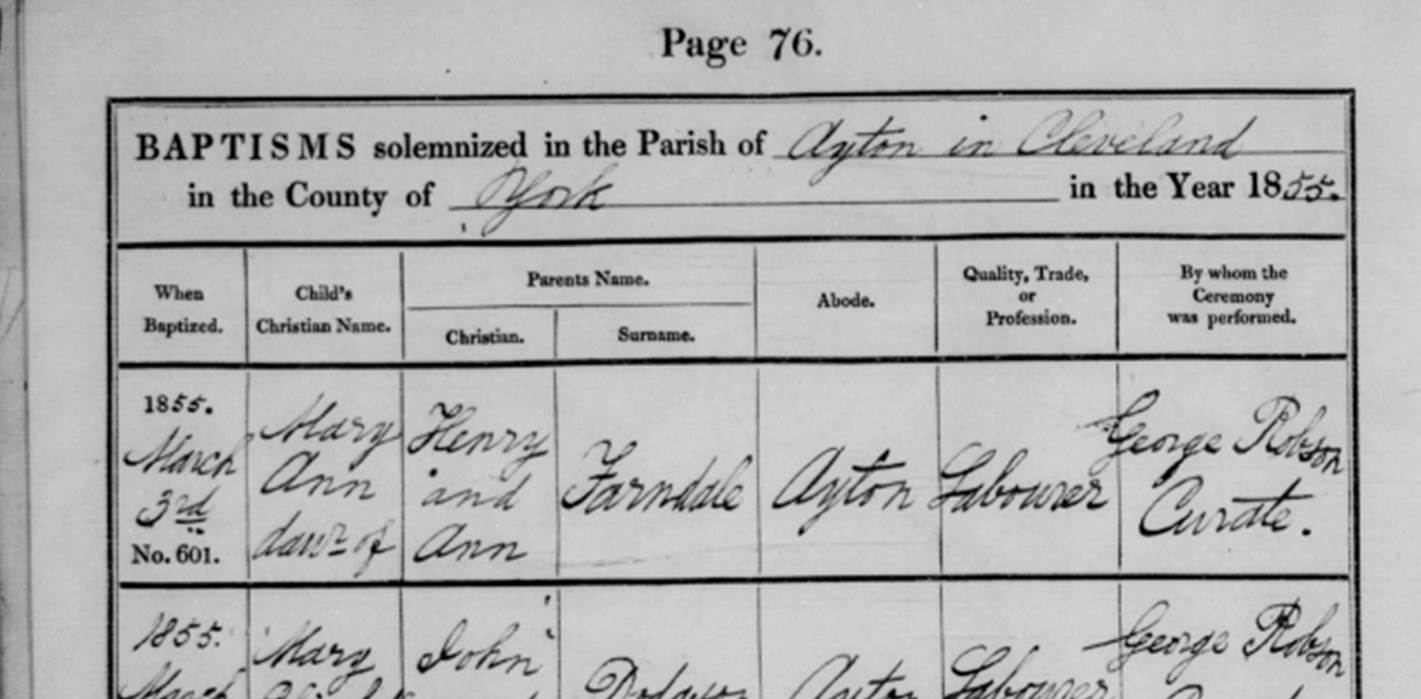 Page 76.
BAPTISMS solemnized in the Parish of Ayton in Cleveland
in the County of York in the Year 1855.
When Baptized.
Child's Christian Name.
Parents Name.
Christian.
Surname.
Abode.
Quality, Trade, or Profession.
By whom the Ceremony was performed.
1855.
March
3rd
No. 601.
Mary
Ann
daur of
Henry
and
Ann
Farndale
Ayton
Labourer
George Robson
Curate.
1855.
March
Mary
John
Dodgson
Ayton
Labourer
George Robson